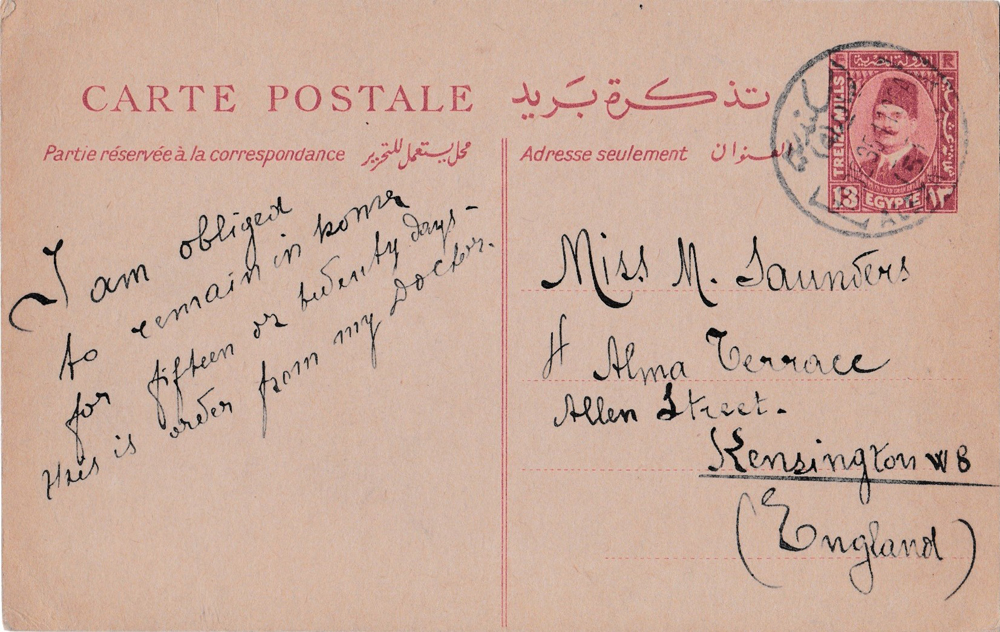 CARTE POSTALE تذكرة بَريد
Partie réservée à la correspondance محل يستعمل للتحرير
Adresse seulement العنوان
I am obliged
to remain in home
for fifteen or twenty days -
this is order from my Doctor.
Miss M. Saunders
4 Alma Terrace
Allen Street.
Kensington W 8
(England)
الدولة المصرية
MILLS
13 EGYPTE ١٣